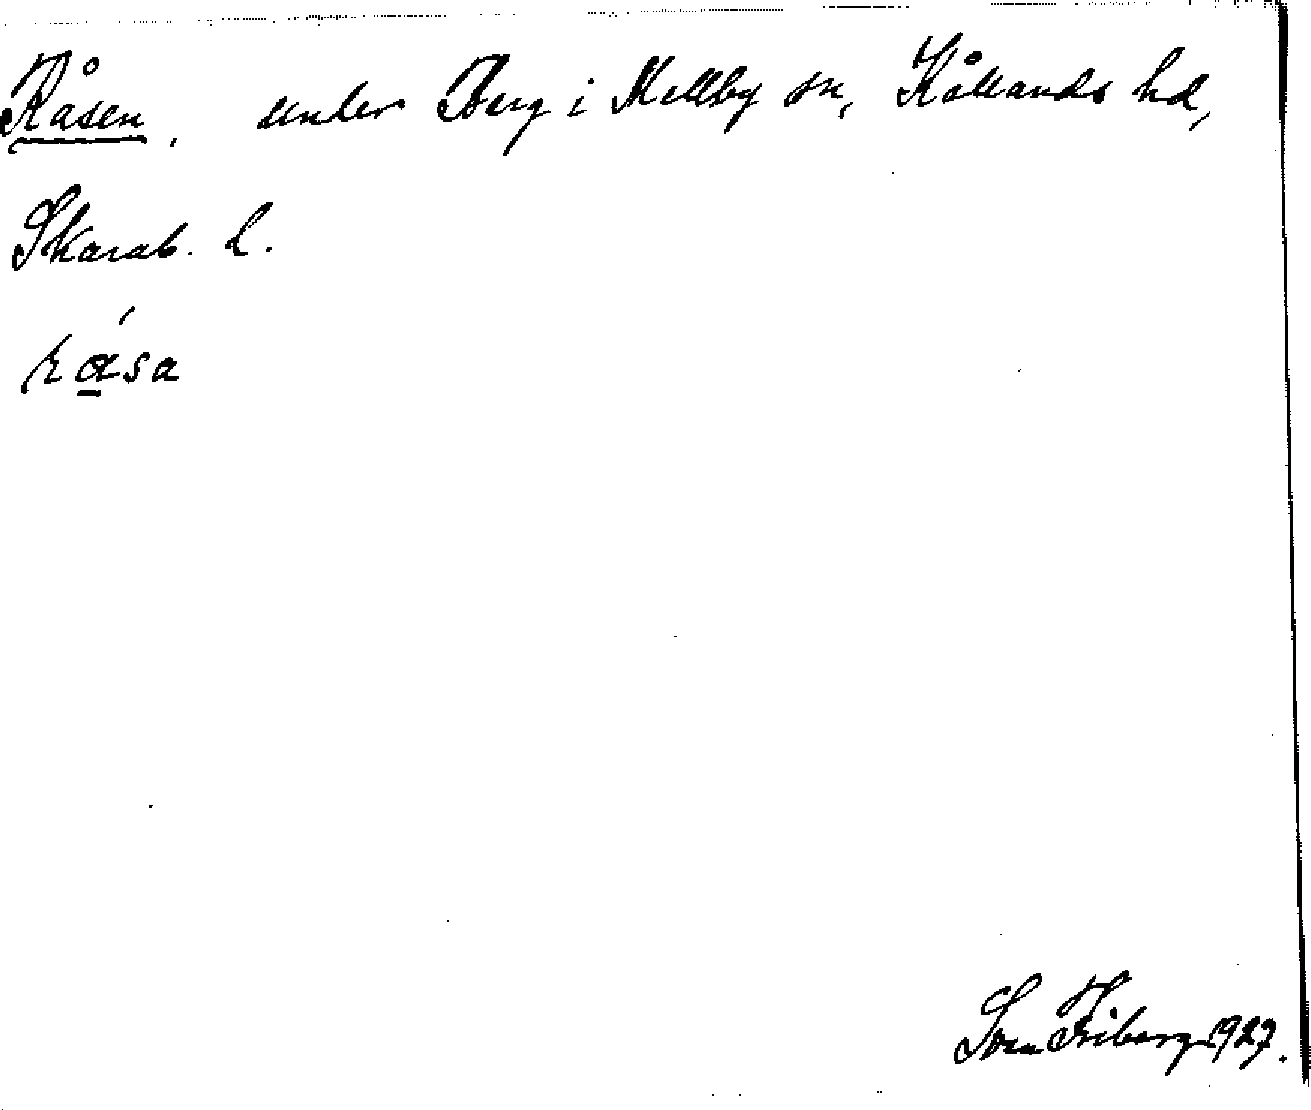 Råsen, under Berg i Mellby sn, Kållands hd,
Skarab. l.
rɑ̱́sa
Sven Friberg 1927.